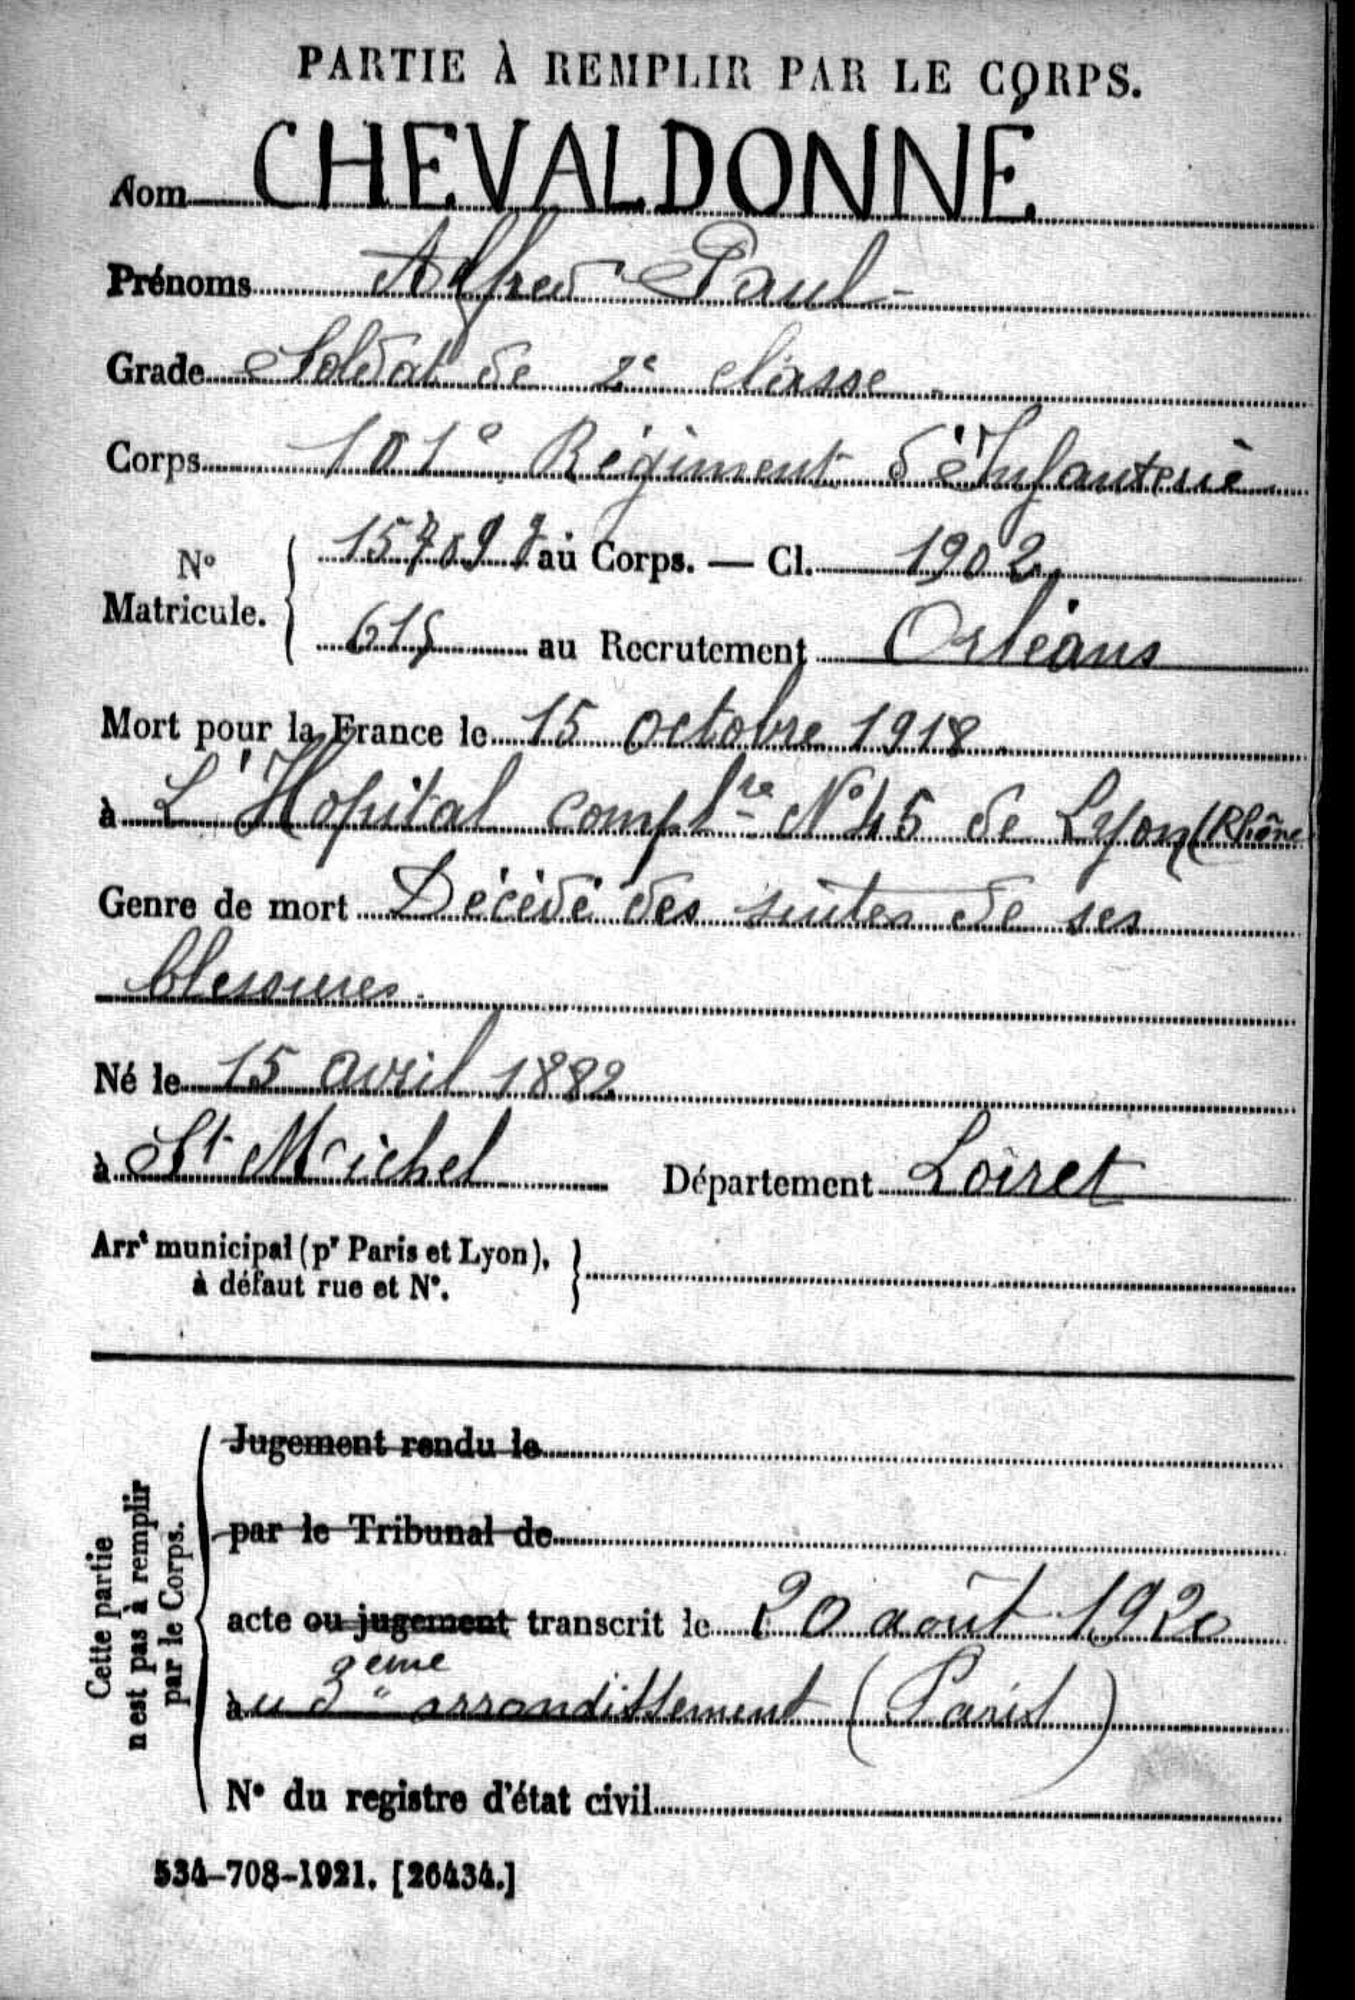 PARTIE À REMPLIR PAR LE CORPS.
Nom CHEVALDONNÉ
Prénoms Alfred Paul -
Grade Soldat de 2e classe
Corps 101e Régiment d'Infanterie
No Matricule. { 15709 7 au Corps. — Cl. 1902
615 au Recrutement Orléans
Mort pour la France le 15 octobre 1918
à L'Hopital complre No 45 de Lyon (Rhône
Genre de mort Décédé des suites de ses
blessures
Né le 15 avril 1882
à St Michel Département Loiret
Arrt municipal (pr Paris et Lyon),
à défaut rue et No.
Cette partie
n'est pas à remplir
par le Corps.
Jugement rendu le
par le Tribunal de
acte ou jugement transcrit le 20 août 1920
3eme
au 3e arrondissement (Paris)
No du registre d'état civil
534-708-1921. [26434.]